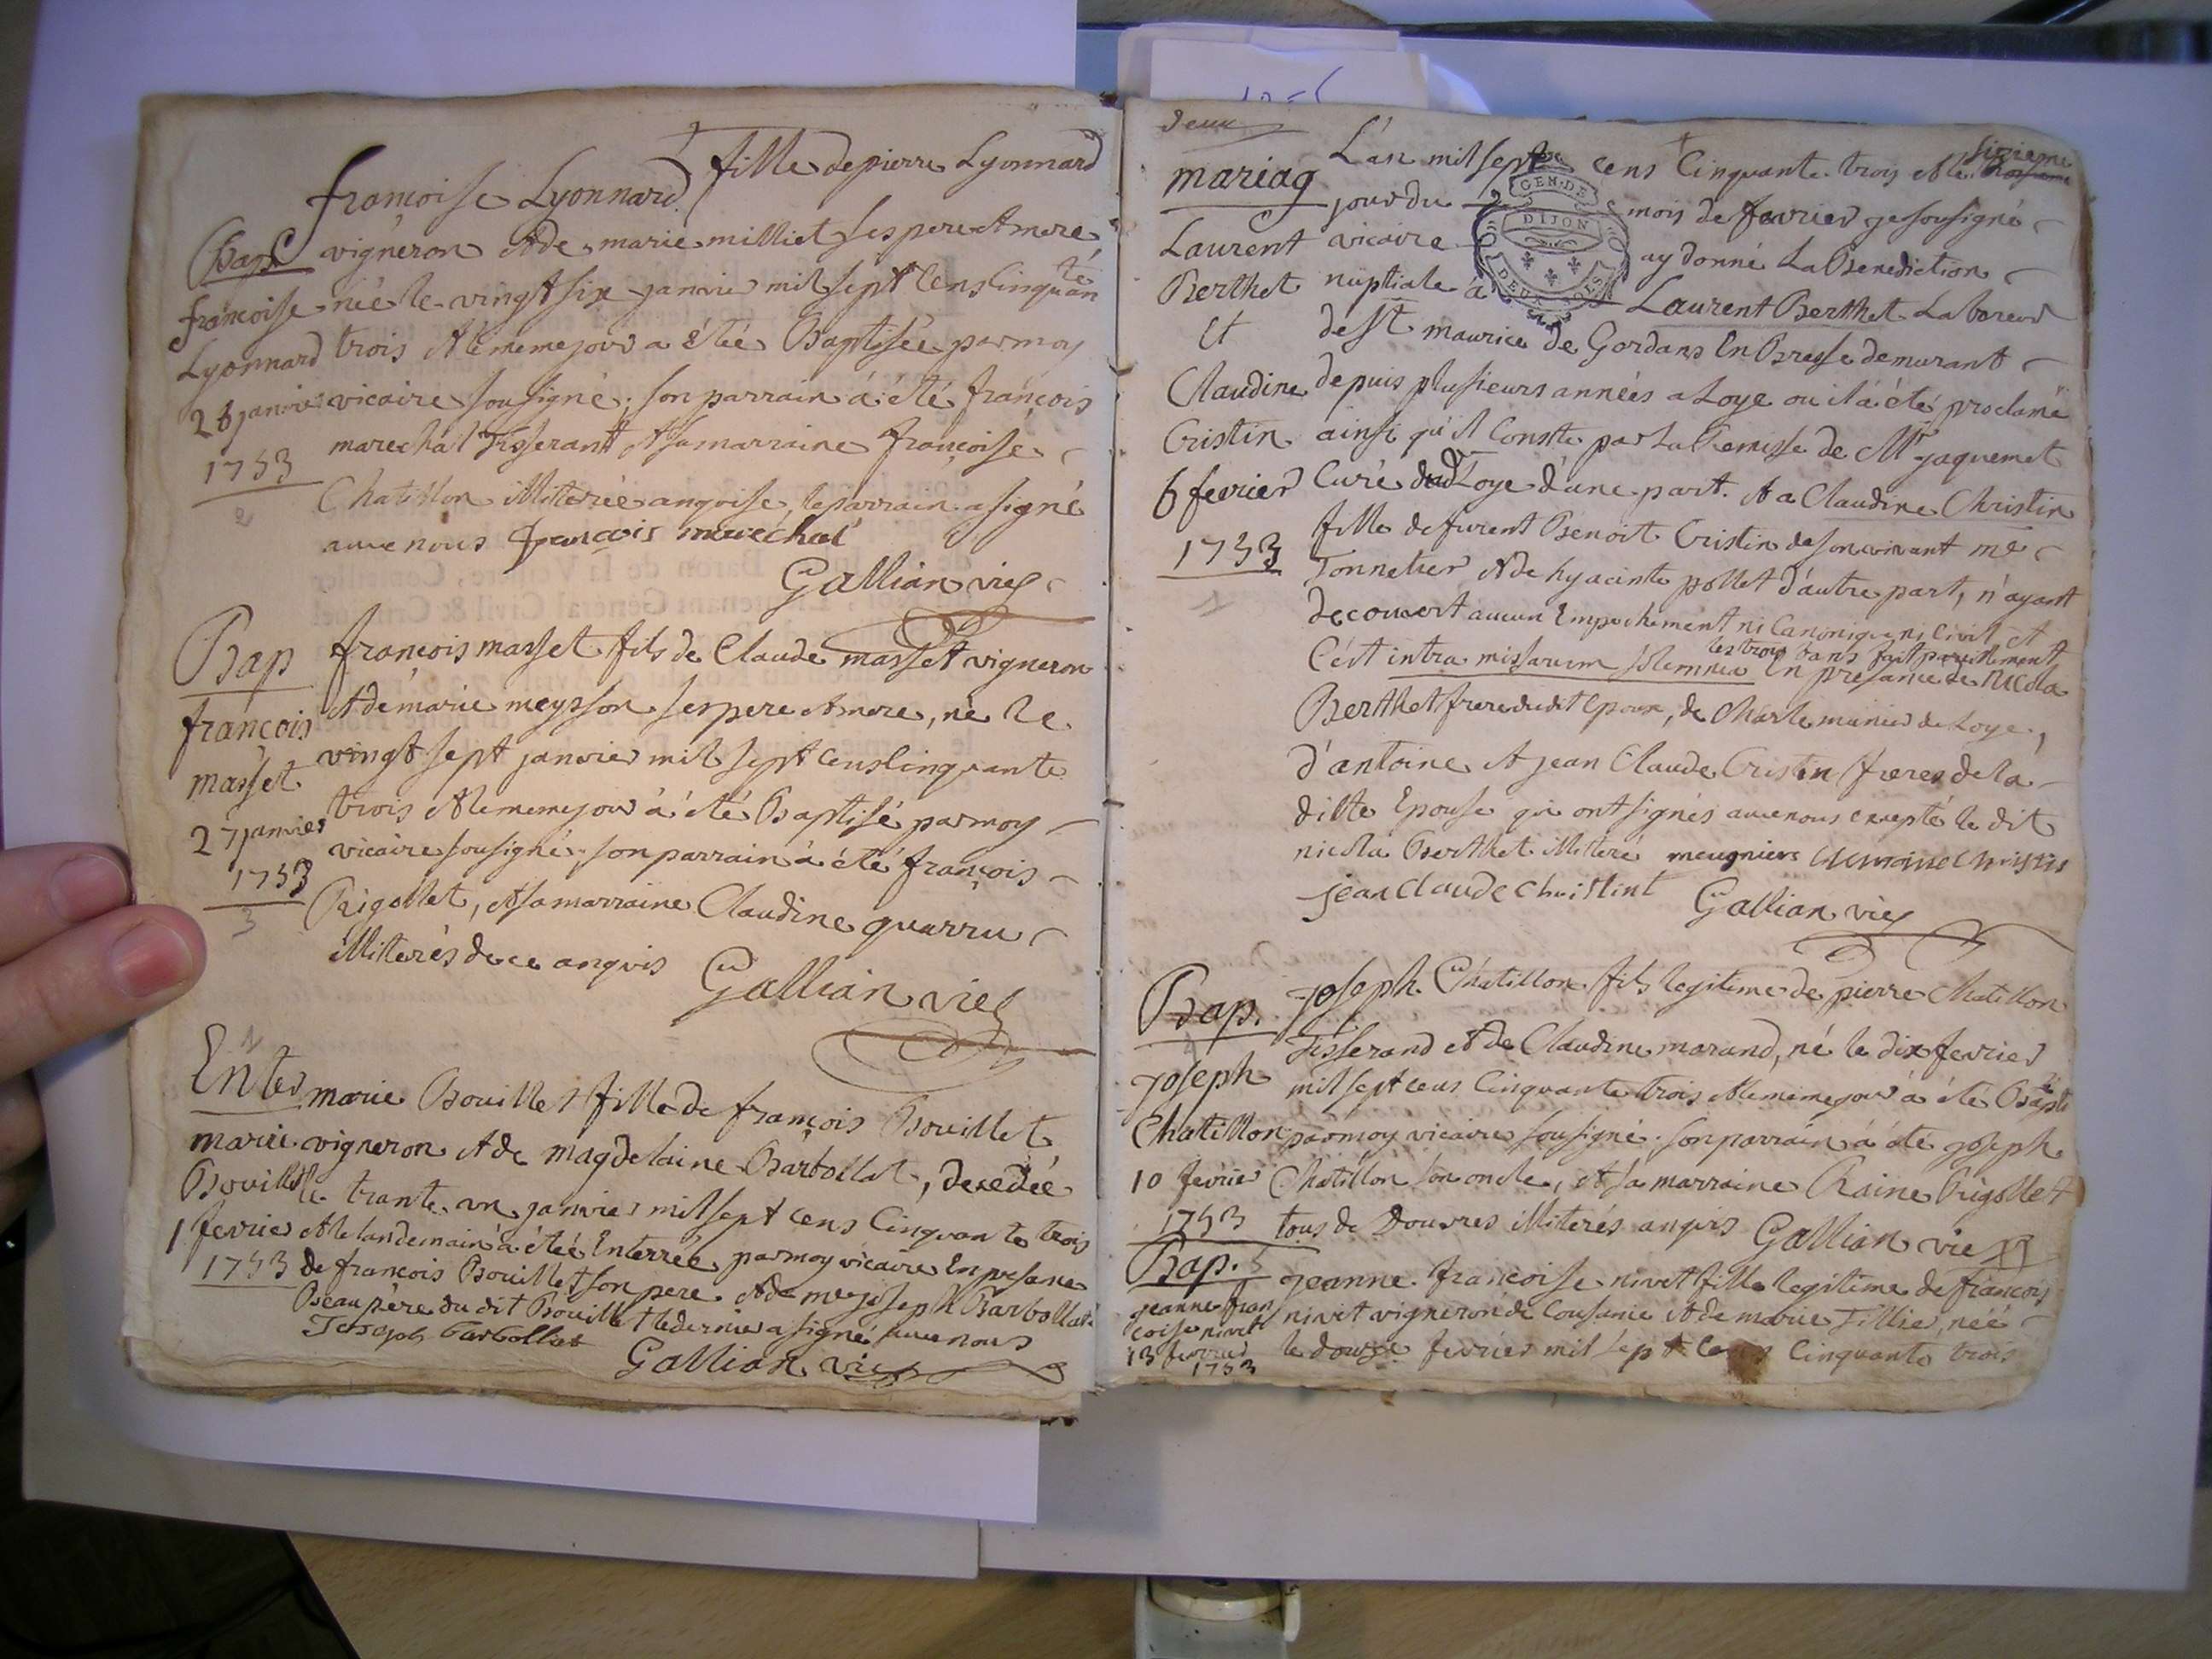 françoise Lyonnard fille de pierre Lyonnard
Bapt vigneron et de marie milliet ses pere et mere
françoise née le vingt six janvier mil sept cens cinquante
Lyonnard trois et le meme jour a été Baptisée par moy
26 janvier vicaire sousigné, son parrain a été françois
1753 marechal Tisserant et sa marraine françoise
2 Chatillon illiterée anquise, le parrain a signé
avec nous françois marechal
Gallian vic
Bap françois masset fils de Claude masset vigneron
françois et de marie meysson ses pere et mere, né le
masset vingt sept janvier mil sept cens cinquante
27 janvier trois et le meme jour à été Baptisé par moy
1753 vicaire sousigné, son parrain à été françois
3 Rigollet, et sa marraine Claudine quarru
illiterés de ce anquis Gallian vic
Enter marie Bouillet fille de françois Bouillet
marie vigneron et de magdelaine Barbollat, decedée
Bouillet le trante un janvier mil sept cens cinquante trois
1 fevrier et le landemain à été Enterrée par moy vicaire En presance
1753 de françois Bouillet son pere et de me joseph Barbollat
Beaupère du dit Bouillet le dernier a signé avec nous
Joseph barbollat Gallian vic
deux
mariag L'an mil sept cens cinquante trois et le sixieme
jour du mois de fevrier je sousigné
GEN. DE
DIJON
DEUX SOLS
Laurent vicaire ay donné La Benediction
Berthet nuptiale à Laurent Berthet Laboreur
Et de St maurice de Gordans En Bresse demurant
Claudine depuis plusieurs années a Loye ou il à été proclamé
Cristin ainsi qu'il Conste par La Remisse de Mr jaquemet
6 fevrier Curé dud Loye d'une part. et a Claudine Christin
1753 fille de furent Benoit Cristin de son vivant me
1 Tonnelier et de hyacinte pollet d'autre part, n'ayant
decouvert aucun Empechement ni Canonique ni civil et
les trois bans fait pareillement
C'est intra missarum solemnia En presance de Nicola
Berthet frere dudit Epoux, de Charle munier de Loye,
d'antoine et jean Claude Cristin freres de la
ditte Epouse qui ont signés avec nous excepté le dit
nicola Berthet illiteré meugniers
jean Claude Christint Gallian vic
Bap. joseph Chatillon fils legitime de pierre Chatillon
4 Tisserand et de Claudine marand, né le dix fevrier
joseph mil sept cens cinquante trois et le meme jour à été Baptisé
Chatillon par moy vicaire sousigné. son parrain à été joseph
10 fevrier Chatillon son oncle, et sa marraine Raine Rigollet
1753 tous de Douvres illiterés anquis Gallian vic
Bap. 5 jeanne françoise nivet fille legitime de françois
jeanne fran nivet vigneron de Cousance et de marie Tillier, née
coise nivet le douze fevrier mil sept cens cinquante trois
13 fevrier
1753